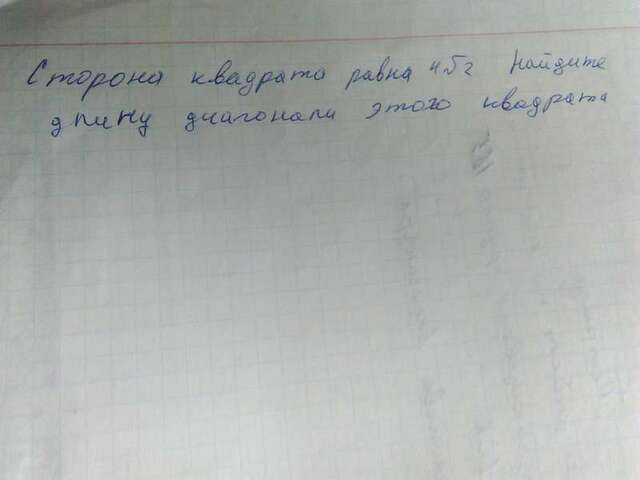 Сторона квадрата равна 4√2 Найдите
длину диагонали этого квадрата